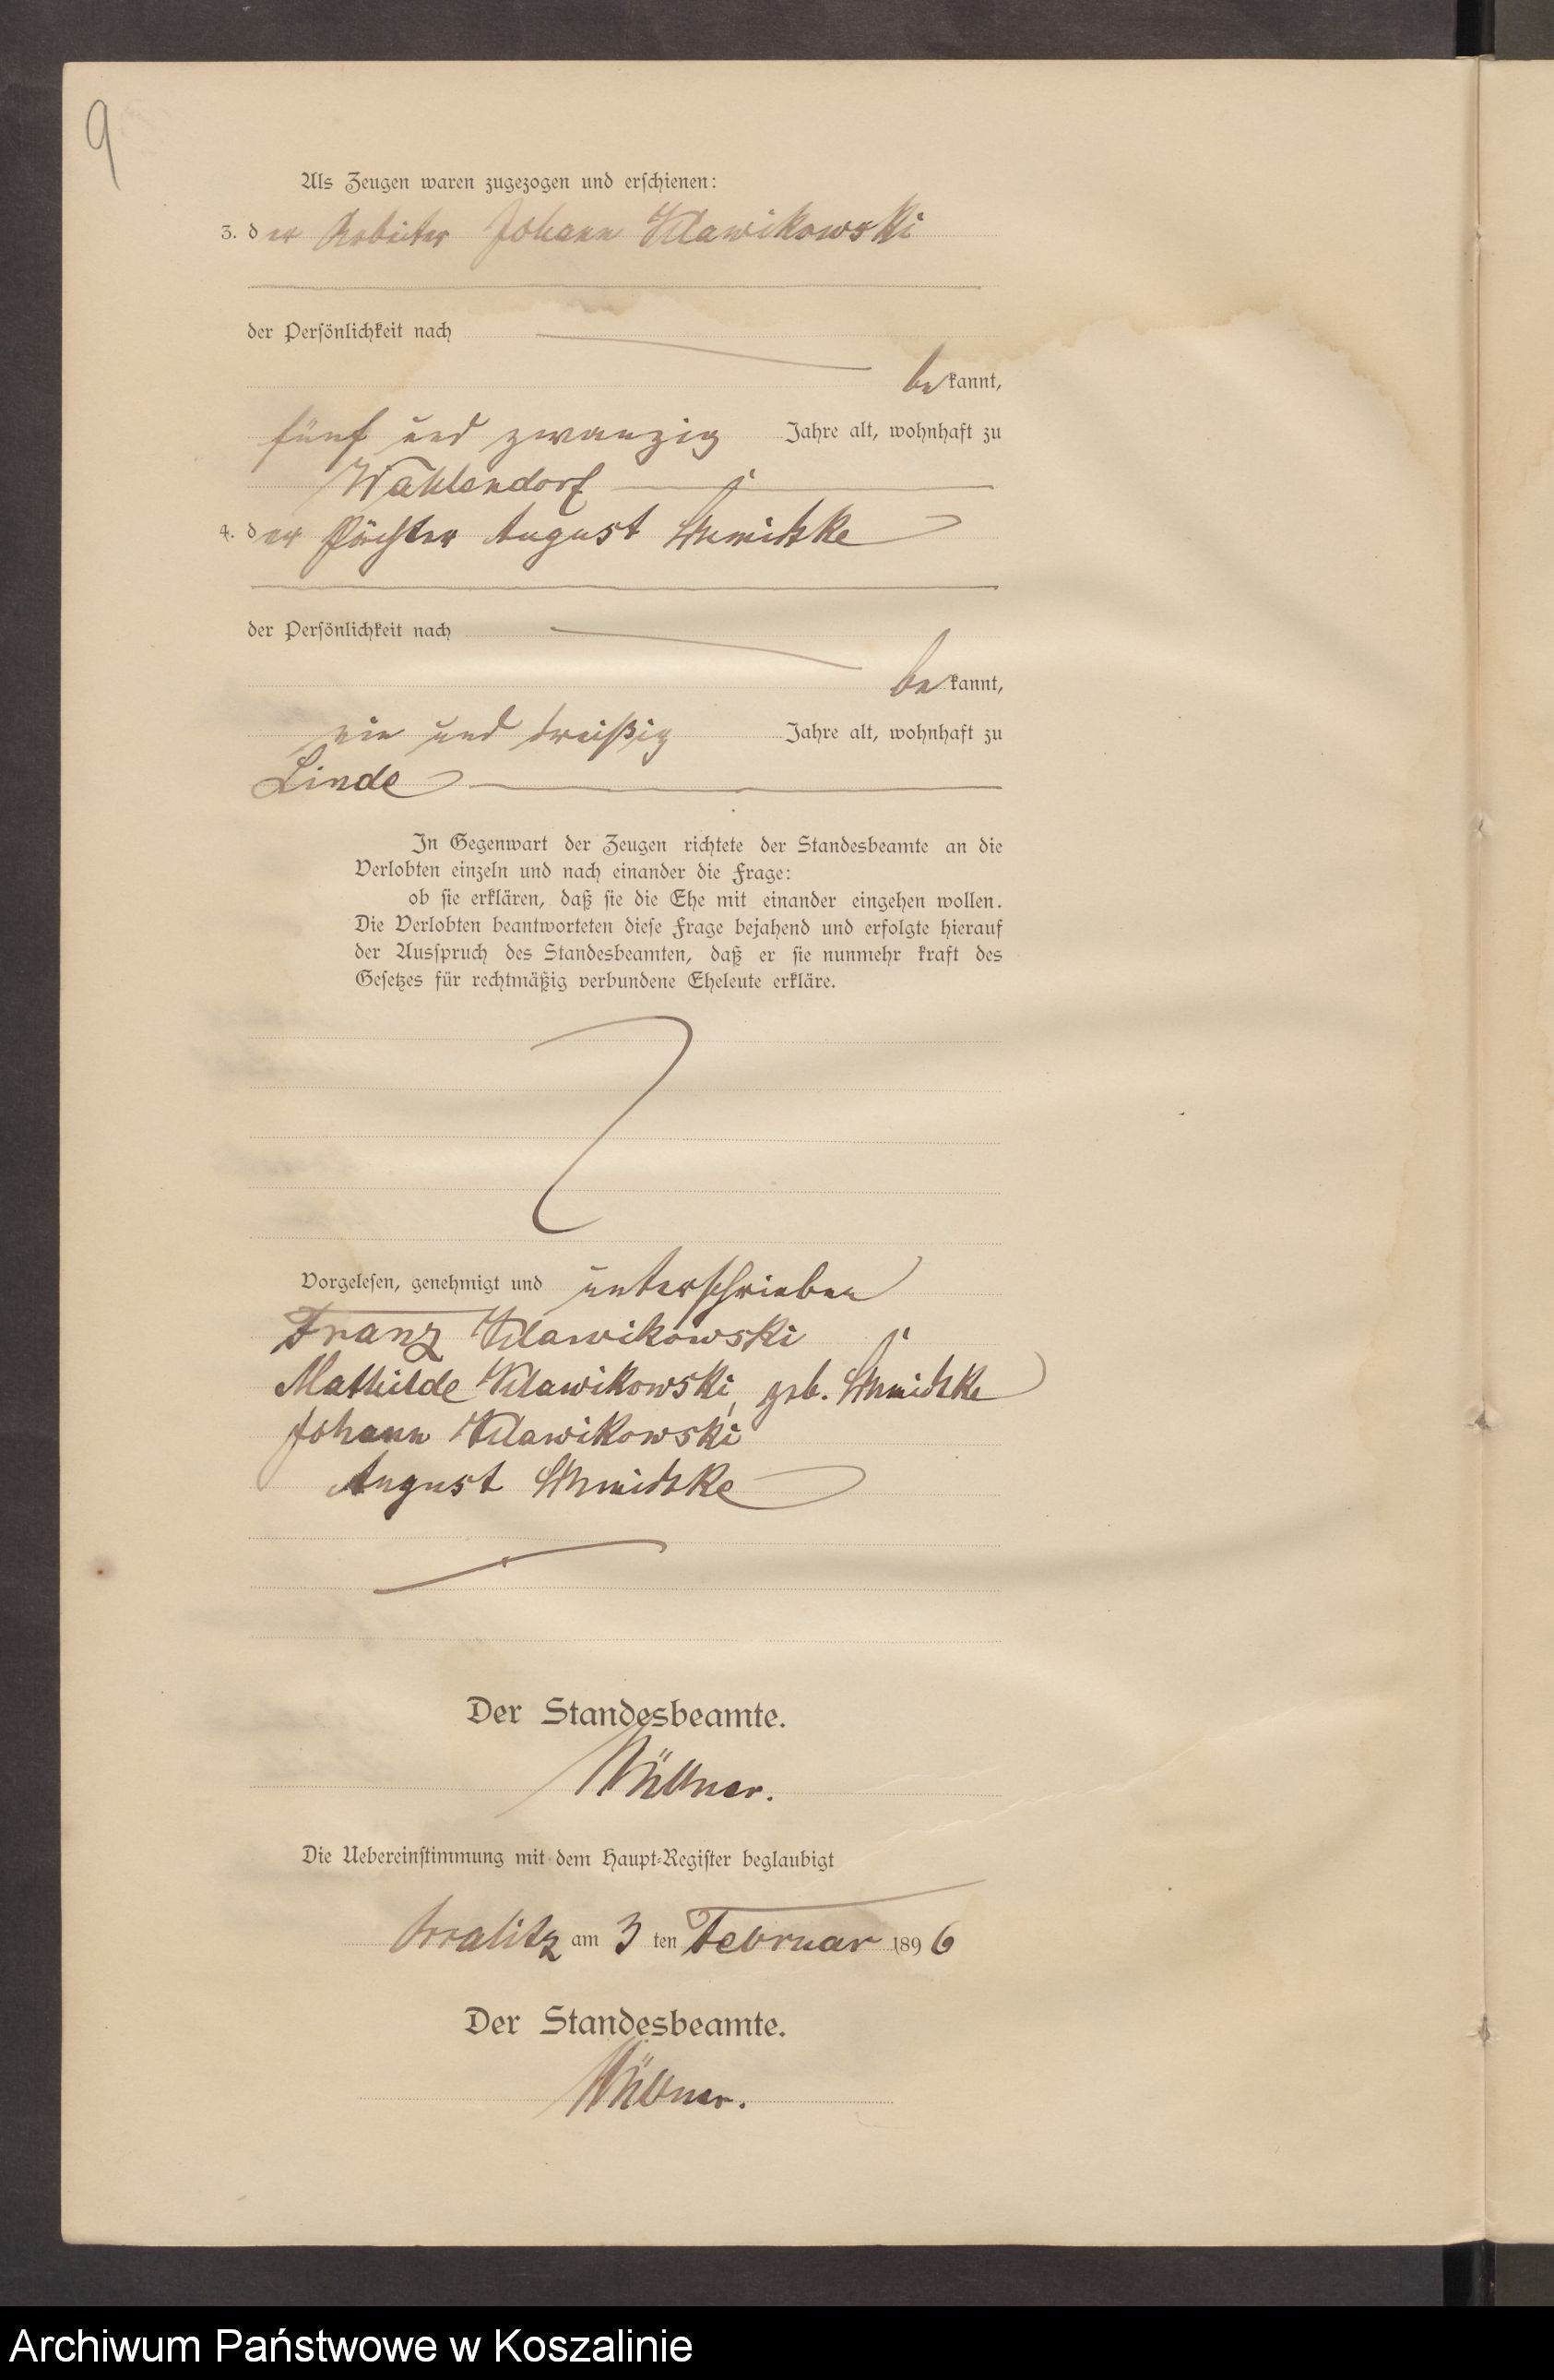 9
Als Zeugen waren zugezogen und erschienen:
3. der Arbeiter Johann Klawikowski
der Persönlichkeit nach
bekannt,
fünf und zwanzig Jahre alt, wohnhaft zu
Wahlendorf
4. der Pächter August Schmidtke
der Persönlichkeit nach
bekannt,
ein und dreißig Jahre alt, wohnhaft zu
Linde
In Gegenwart der Zeugen richtete der Standesbeamte an die
Verlobten einzeln und nach einander die Frage:
ob sie erklären, daß sie die Ehe mit einander eingehen wollen.
Die Verlobten beantworteten diese Frage bejahend und erfolgte hierauf
der Ausspruch des Standesbeamten, daß er sie nunmehr kraft des
Gesetzes für rechtmäßig verbundene Eheleute erkläre.
Vorgelesen, genehmigt und unterschrieben
Franz Klawikowski
Mathilde Klawikowski, geb. Schmidtke
Johann Klawikowski
August Schmidtke
Der Standesbeamte.
Die Uebereinstimmung mit dem Haupt-Register beglaubigt
am 3 ten Februar 1896
Der Standesbeamte.
Archiwum Państwowe w Koszalinie